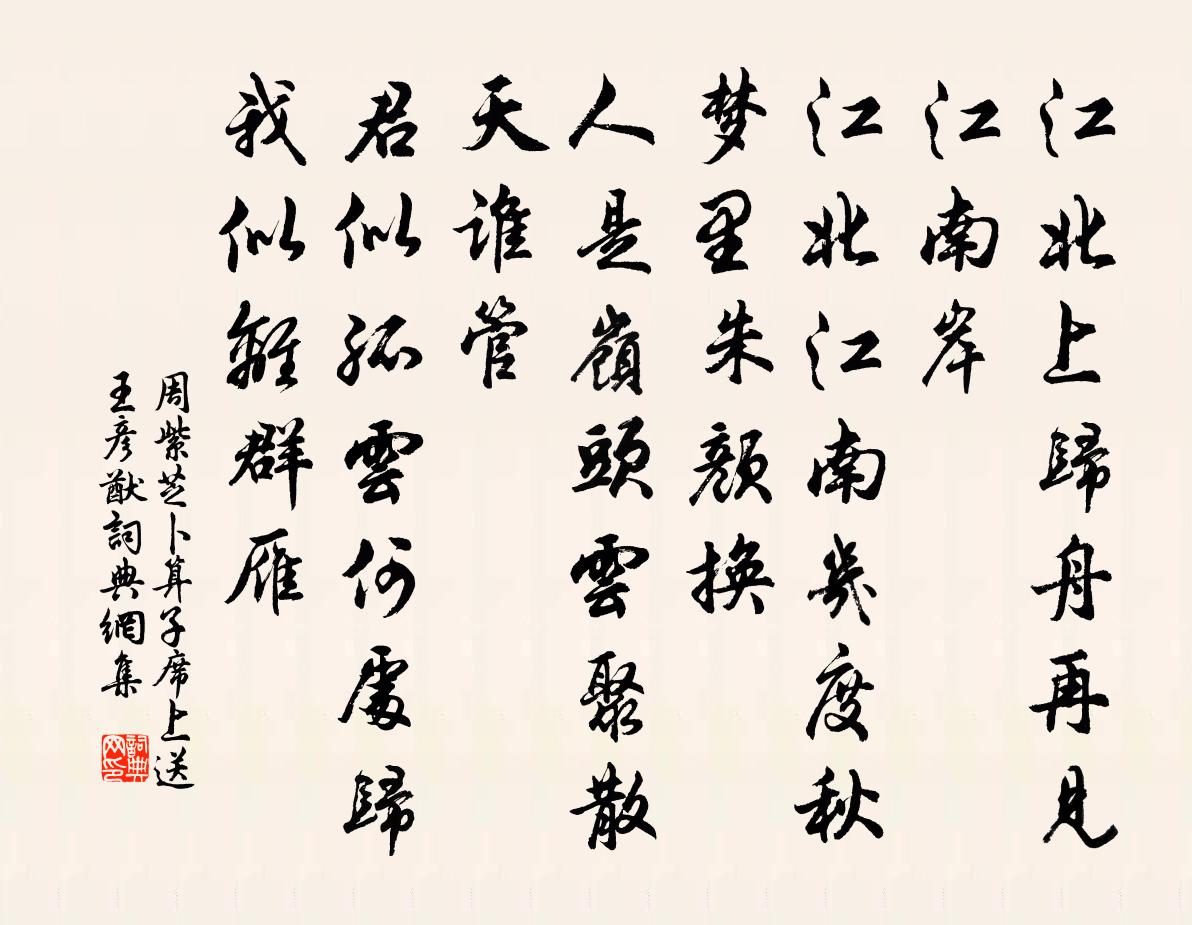 江北上歸舟再見
江南岸
江北江南幾度秋
梦里朱顏換
人是嶺頭雲聚散
天誰管
君似孤雲何處歸
我似離群雁
周紫芝卜算子席上送
王彥猷詞典網集
詞典
网印